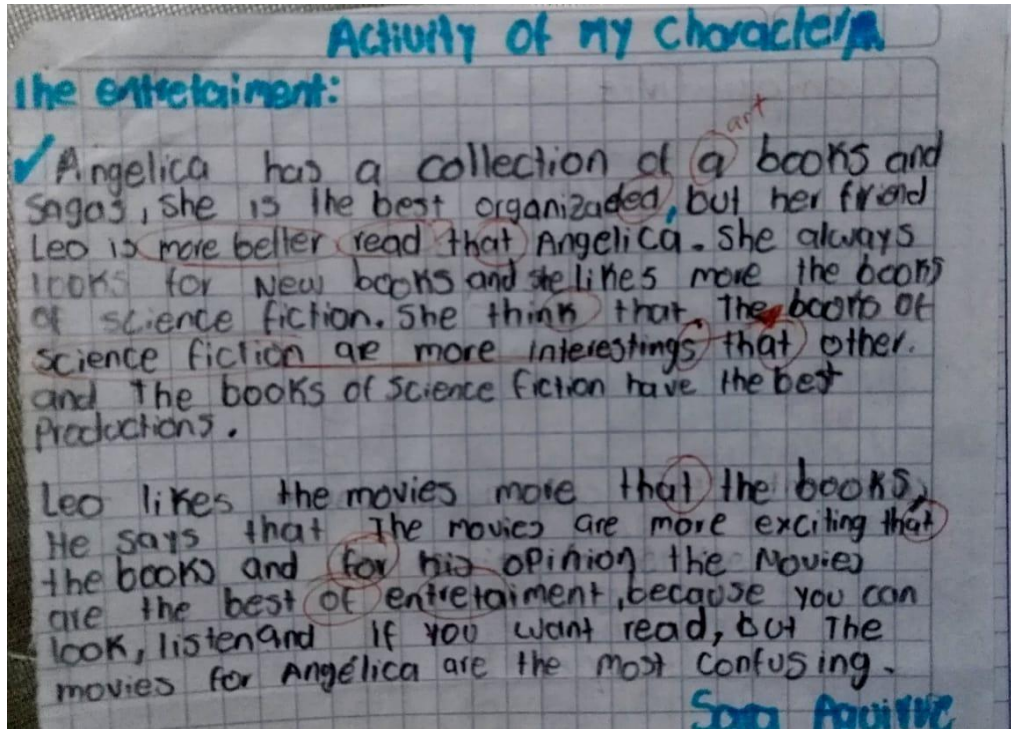 Activity of my character
The entretaiment:
art
✓ Angelica has a collection of a books and
sagas, she is the best organizaded, but her friend
Leo is more better read that Angelica. She always
looks for New books and she likes more the books
of science fiction. She think that The books of
science fiction are more interestings that other.
and The books of science fiction have the best
Productions.
Leo likes the movies more that the books,
He says that The movies are more exciting that
the books and for his opinion the Movies
are the best of entretaiment, because you can
look, listen and If you want read, but The
movies for Angélica are the most confusing.
Sara Aguirre